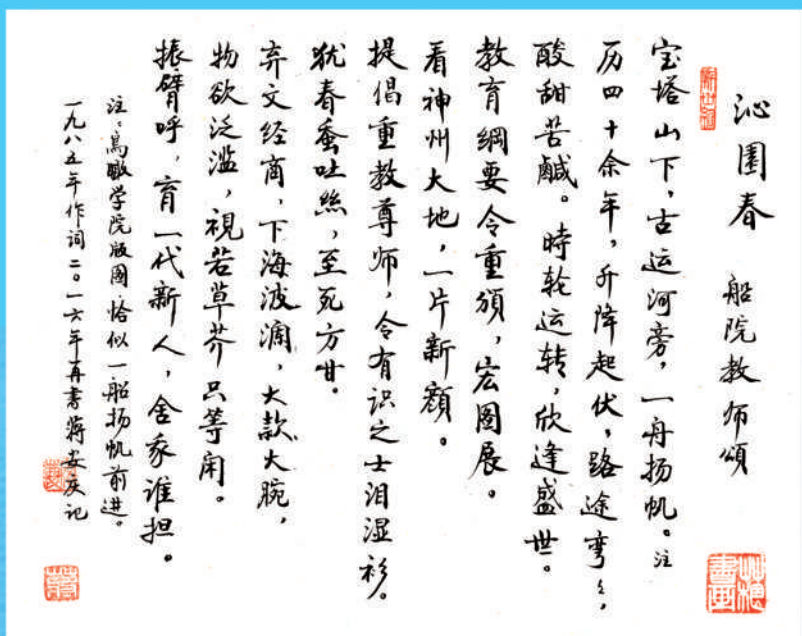 沁園春 船院教师頌
宝塔山下，古运河旁，一舟扬帆。注
历四十余年，升降起伏，路途弯々，
酸甜苦鹹。時轮运转，欣逢盛世。
教育綱要令重頒，宏图展。
看神州大地，一片新顏。
提倡重教尊师，令有识之士泪湿衫。
犹春蚕吐絲，至死方甘。
弃文经商，下海波澜，大款大腕，
物欲泛滥，視若草芥只等闲。
振臂呼，育一代新人，舍我谁担。
注：鳥瞰学院版图，恰似一船扬帆前进。
一九八五年作词二〇一六年再書蒋安庆记